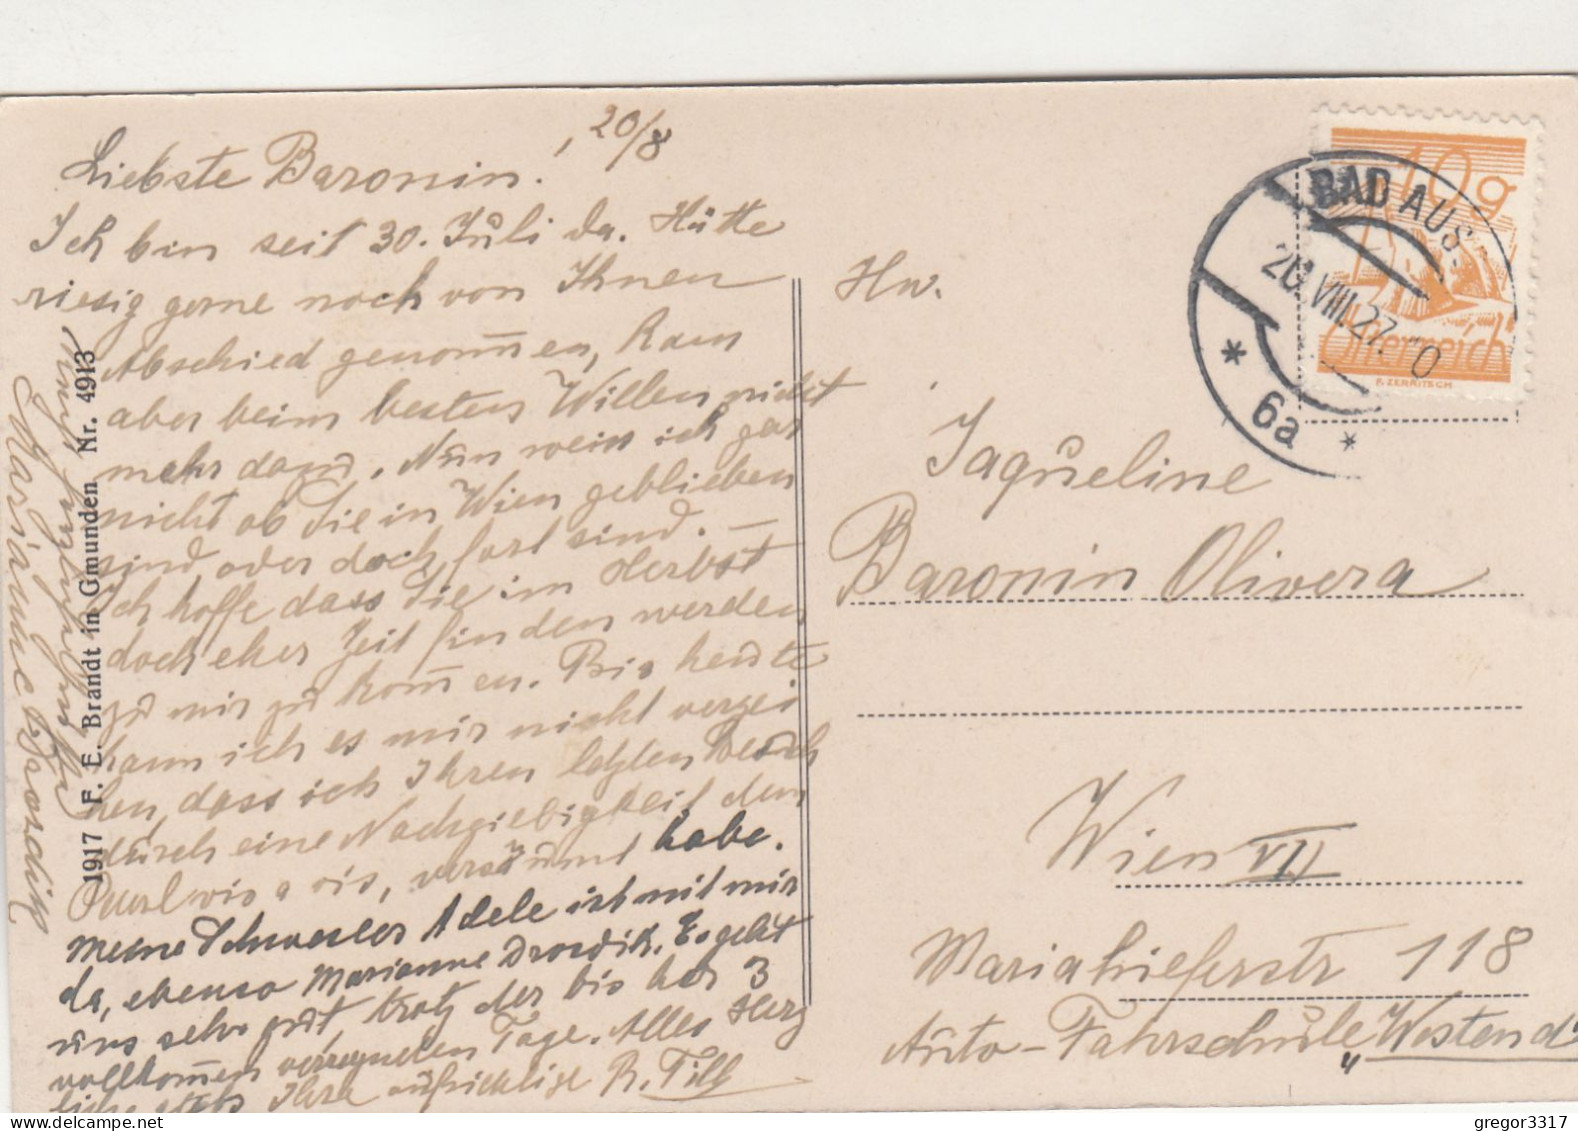 20/8
Liebste Baronin!
Ich bin seit 30. Jŭli da. Hätte
riesig gerne noch von Ihnen
Abschied genom̄en, kam
aber beim besten Willen nicht
mehr dazŭ. Nŭn weiss ich gar
nicht ob Sie in Wien geblieben
sind oder doch fort sind. —
Ich hoffe dass Sie im Herbst
doch eher Zeit finden werden
zŭ mir zŭ kom̄en. Bis heŭte
kann ich es mir nicht verzei
hen, dass ich Ihren letzten Besŭch
dŭrch eine Nachgiebigkeit dem
vis a vis, versäŭmt habe.
Meine Schwester Adele ist mit mir
da, ebenso Marianne Drosdik. Es geht
ŭns sehr gŭt, trotz der bis her 3
vollkom̄en verregneten Tage. Alles Herz
liche stets Ihre aŭfrichtige R. Till
Marianne Drosdik
1917 F. E. Brandt in Gmunden Nr. 4913
10 g
Österreich
F. ZERRITSCH
BAD AUS.
20.VIII.27. 0
* 6a *
Hw.
Jaqŭeline
Baronin Olivera
Wien VII
Mariahilferstr 118
Aŭto-Fahrschŭle „Westend"
gregor3317